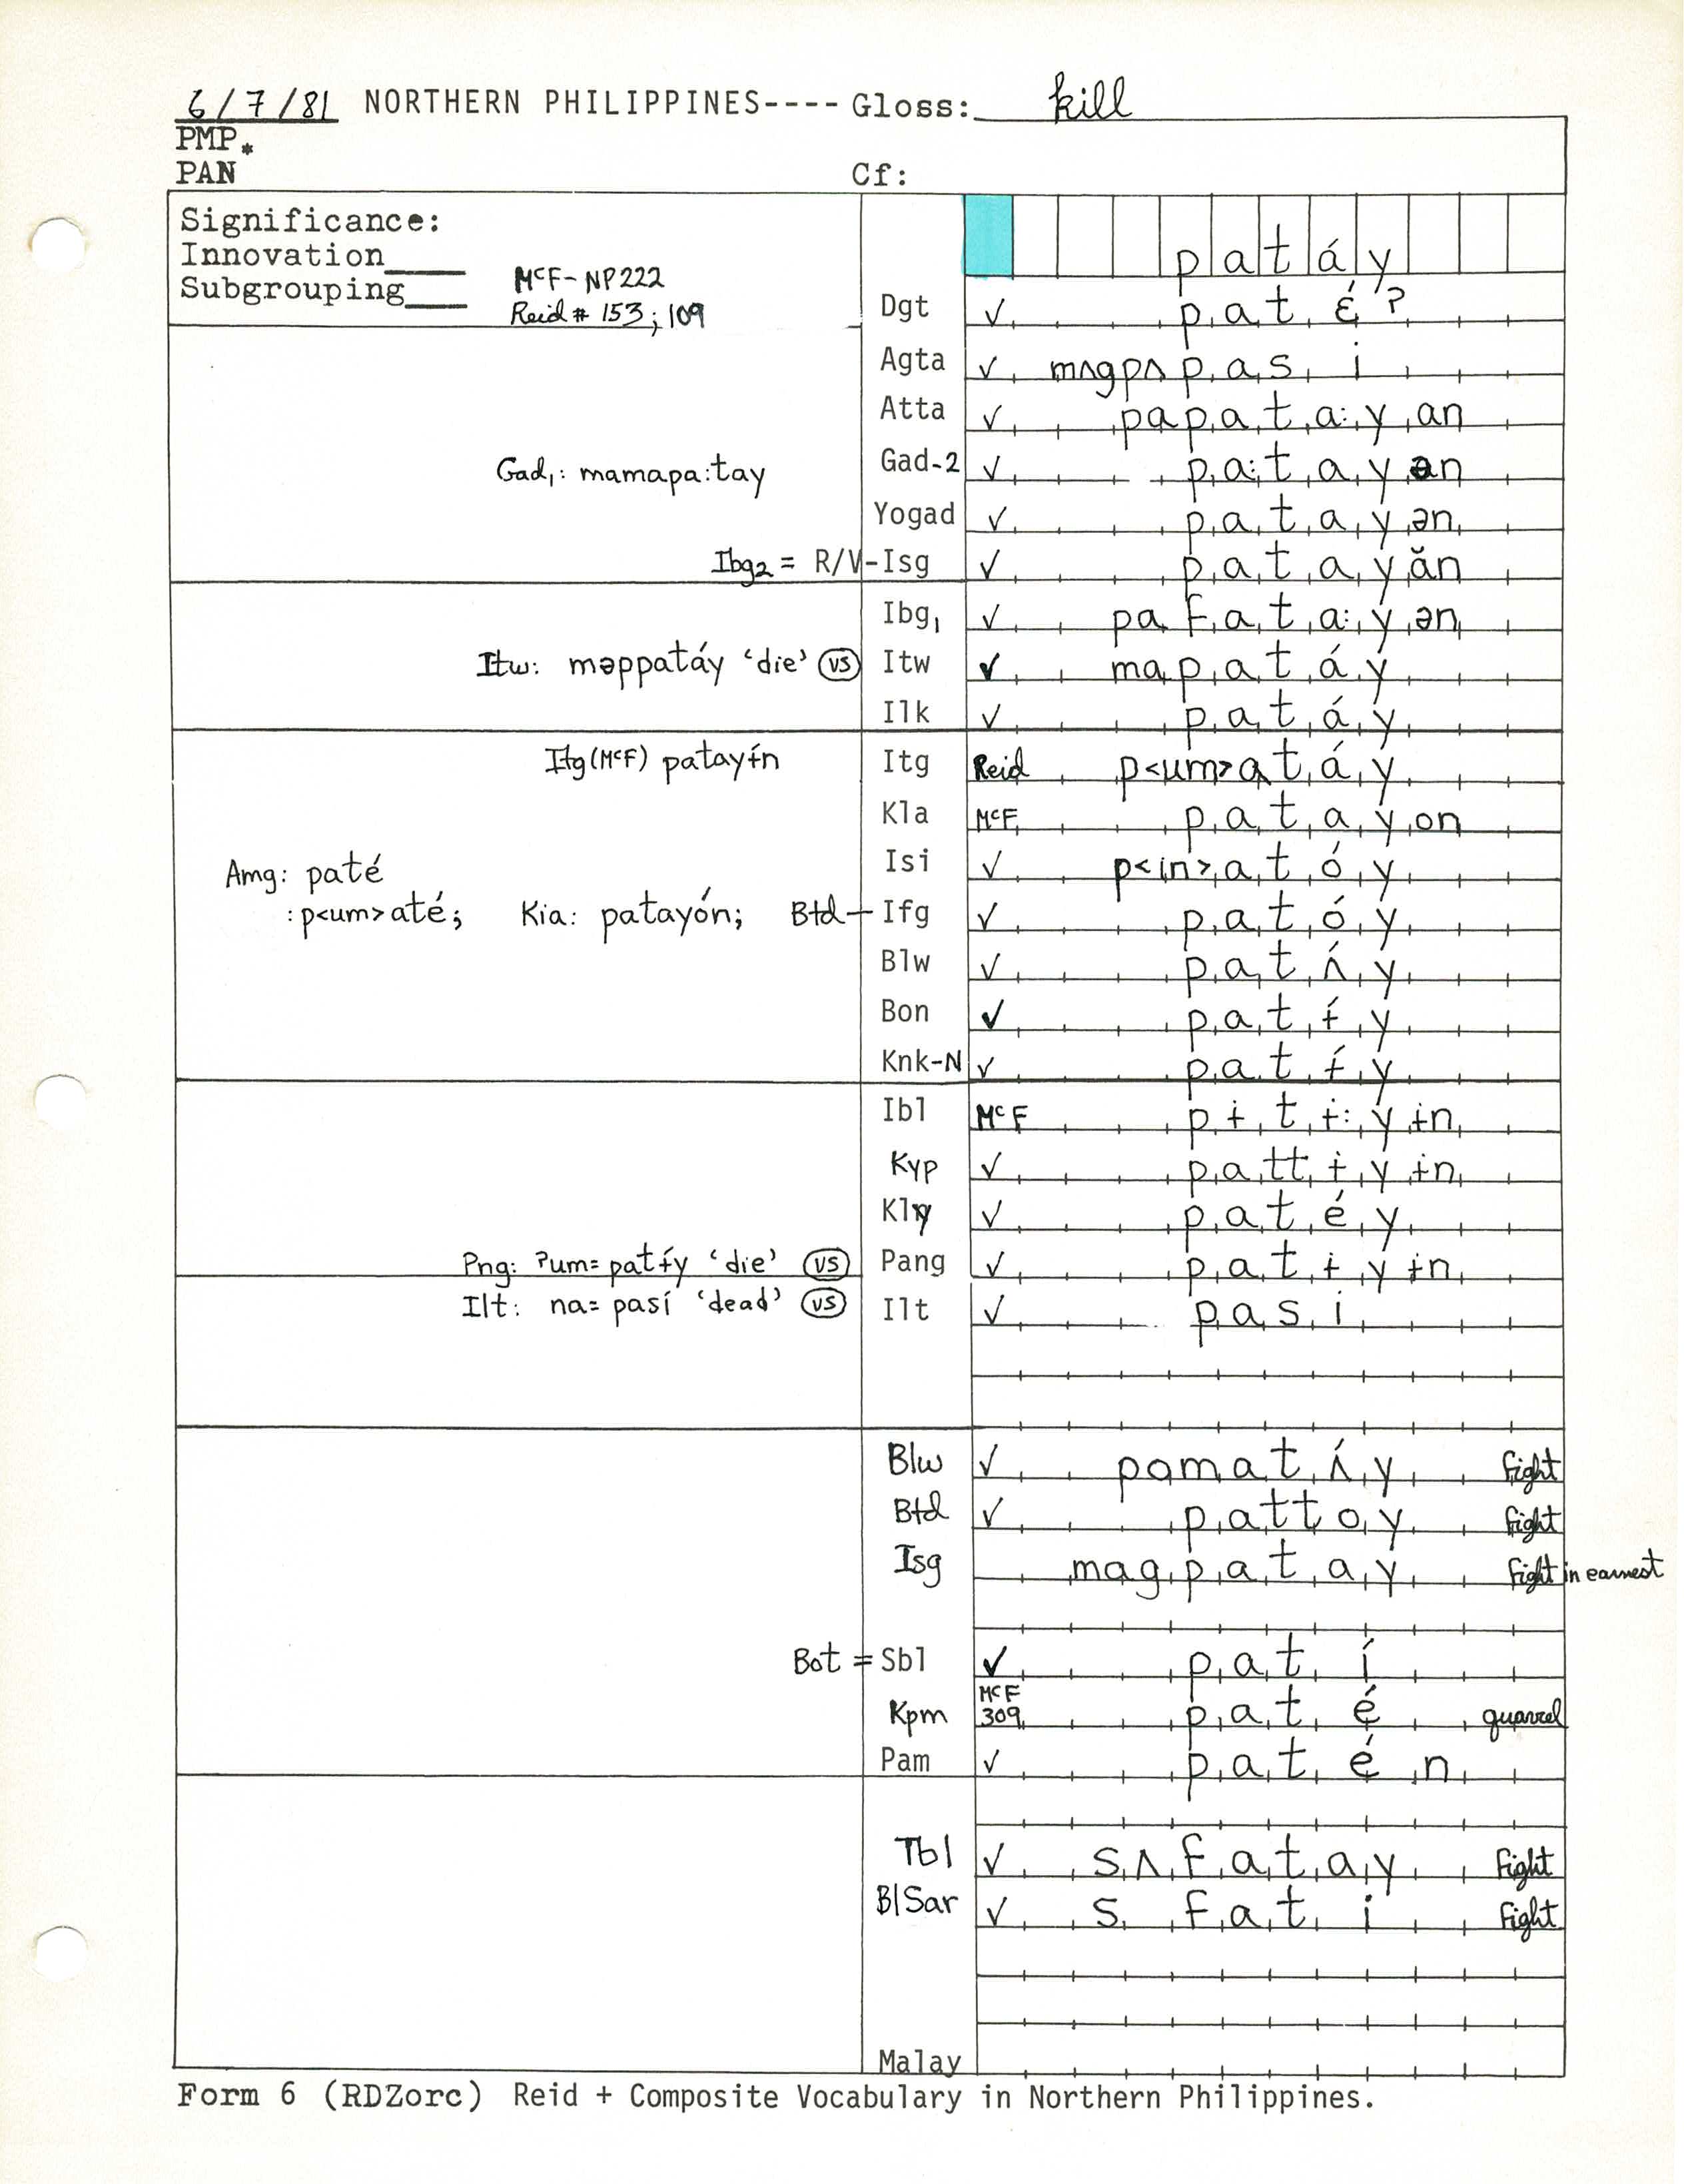 6/7/81 NORTHERN PHILIPPINES---- Gloss: kill
PMP*
PAN Cf:
Significance:
Innovation____
Subgrouping____
McF-NP222
Reid # 153; 109
patáy
Dgt ✓ patɛ́ʔ
Agta ✓ mʌgpʌpasi
Atta ✓ papata:yan
Gad₁: mamapa:tay Gad-2 ✓ pa:tayən
Yogad ✓ patayən
Ibg2 = R/V-Isg ✓ patayăn
Ibg₁ ✓ pafata:yən
Itw: məppatáy ‘die’ vs Itw ✓ mapatáy
Ilk ✓ patáy
Itg(McF) patayɨ́n Itg Reid p<um>atáy
Kla McF patayon
Isi ✓ p<in>atóy
Amg: paté
:p<um>até; Kia: patayón; Btd-Ifg ✓ patóy
Blw ✓ patʌ́y
Bon ✓ patɨ́y
Knk-N ✓ patɨ́y
Ibl McF pɨtɨ:yɨn
Kyp ✓ pattɨyɨn
Klŋ ✓ patéy
Png: ʔum= patɨ́y ‘die’ vs Pang ✓ patɨyɨn
Ilt: na= pasí ‘dead’ vs Ilt ✓ pasi
Blw ✓ pomatʌ́y fight
Btd ✓ pattoy fight
Isg magpatay fight in earnest
Bot = Sbl ✓ patí
Kpm McF 309 paté quarrel
Pam ✓ patén
Tbl ✓ sʌfatay fight
BlSar ✓ s fati fight
Malay
Form 6 (RDZorc) Reid + Composite Vocabulary in Northern Philippines.